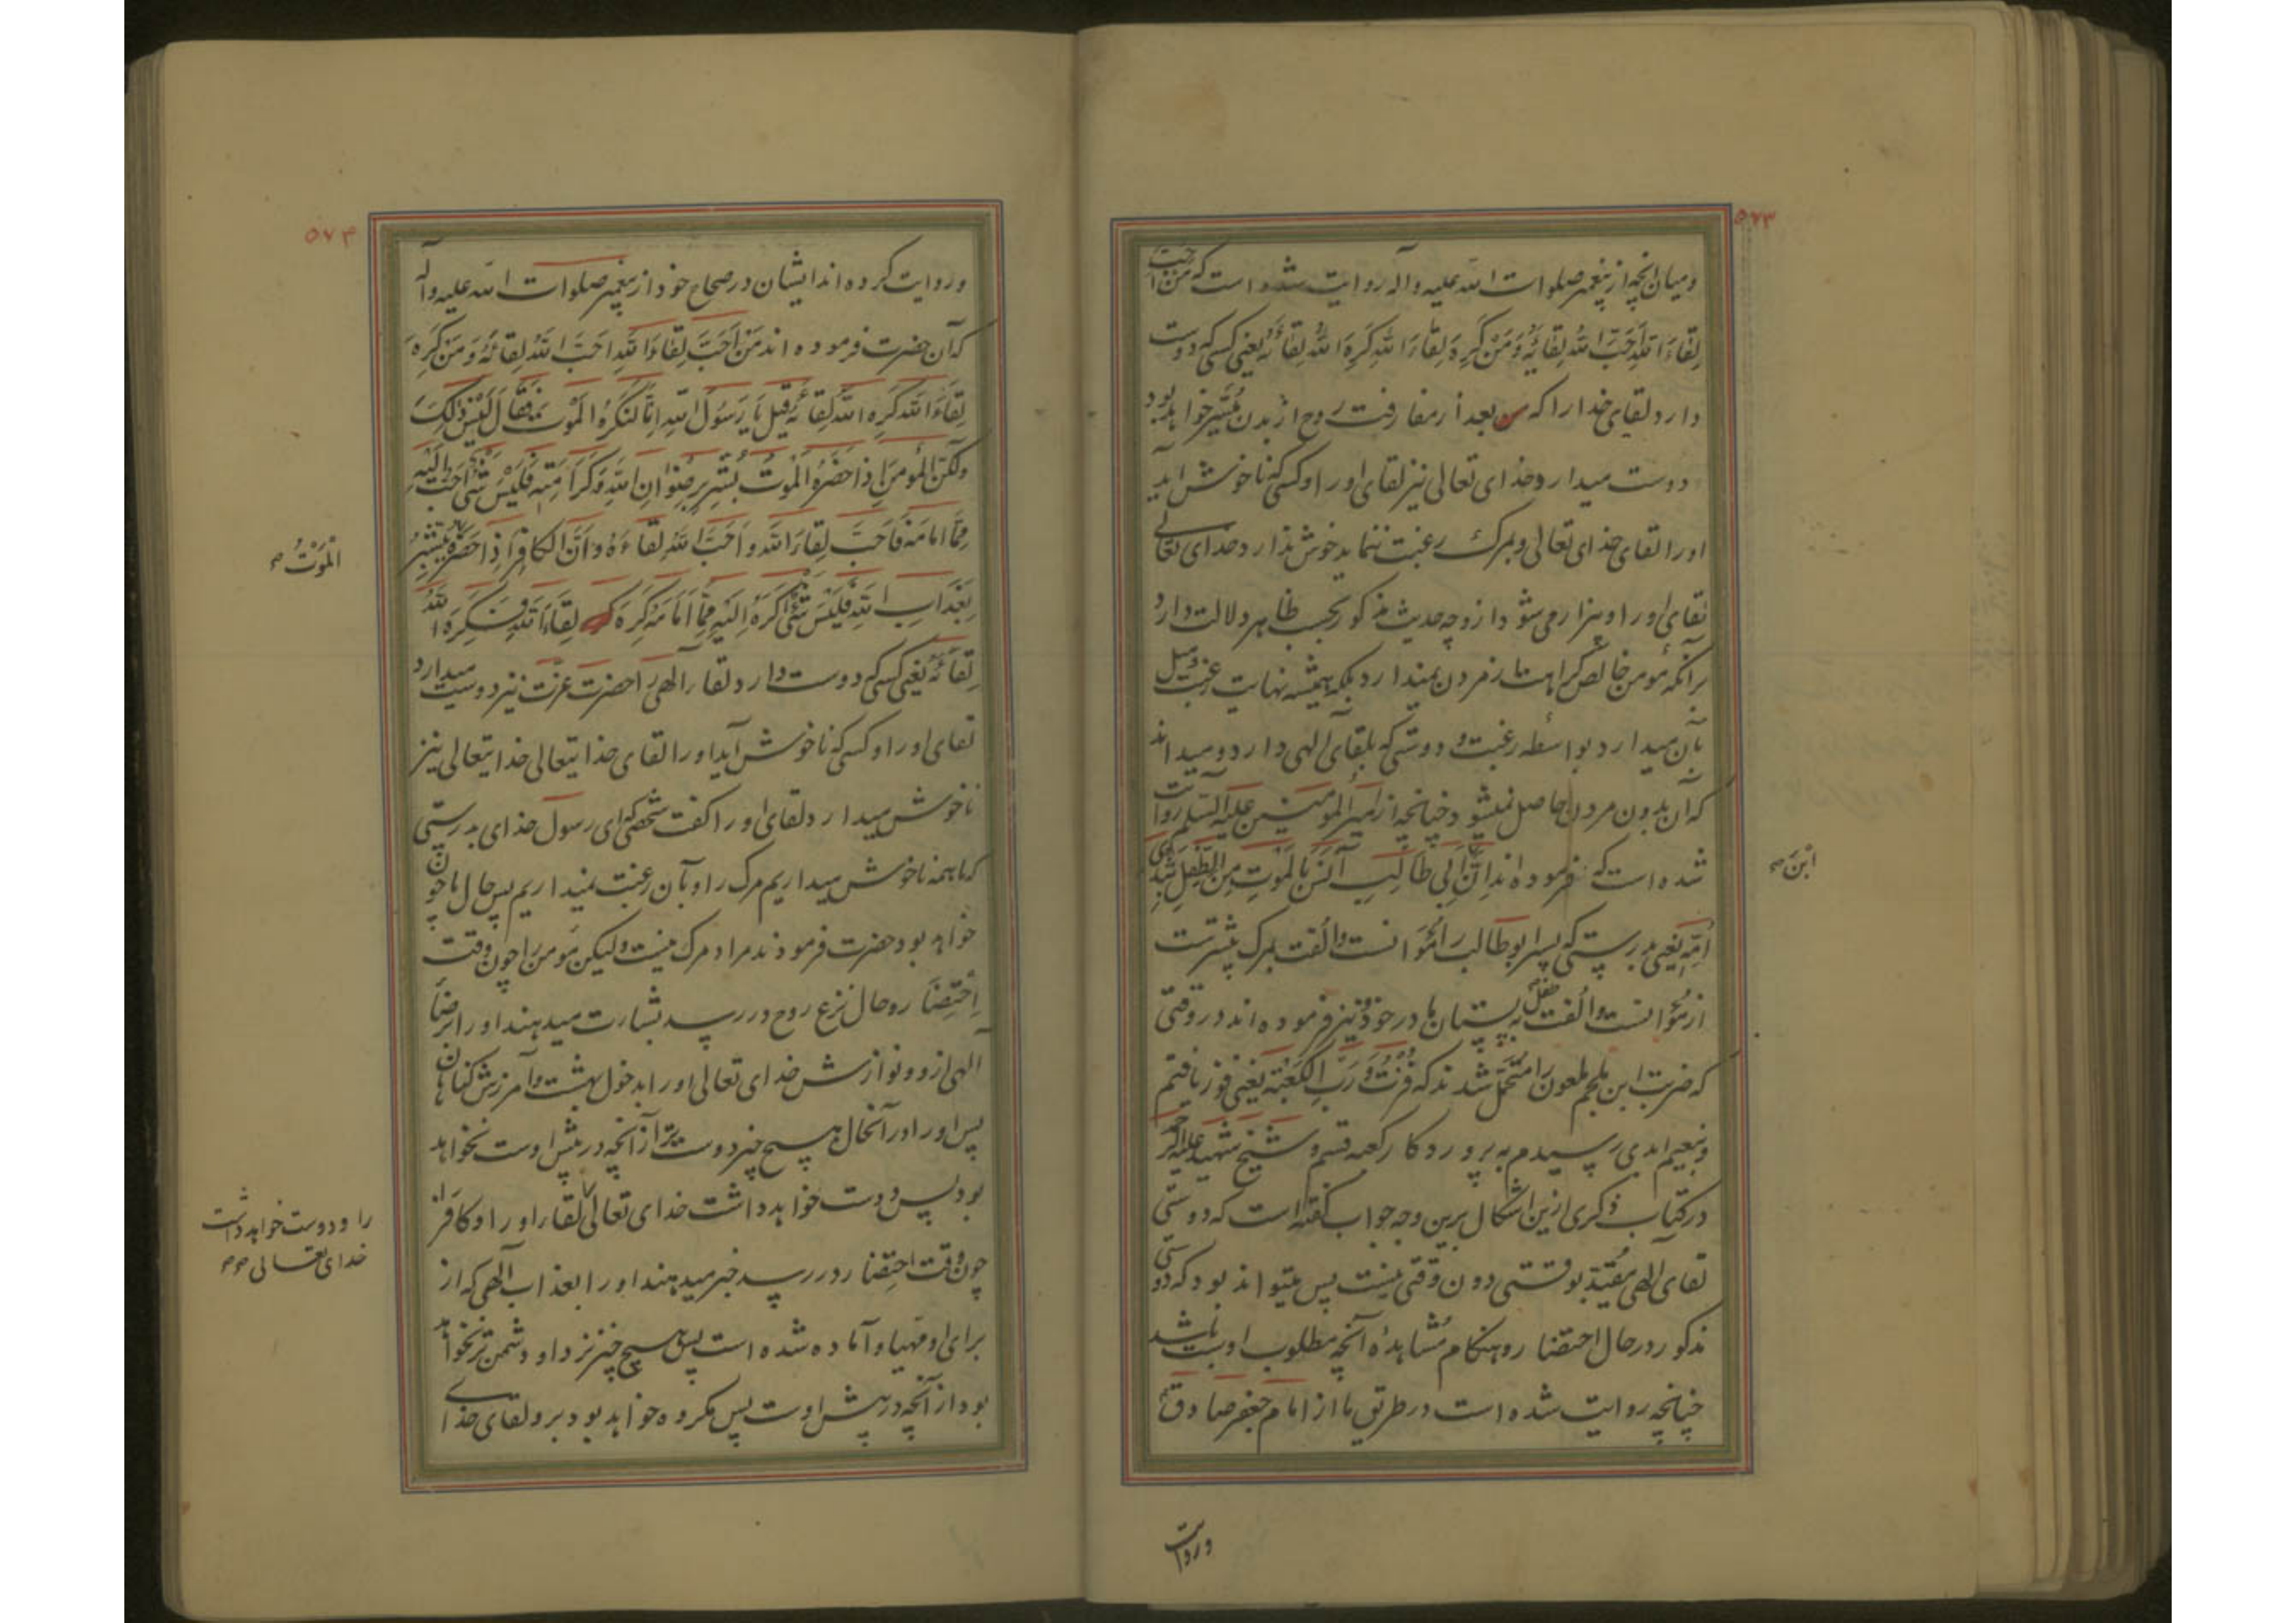 ۵۷۳
ومیان انچه از پیغمبر صلوات الله علیه وآله روایت شده است که مَن اَحَبَّ
لِقاءَ اللهِ اَحَبَّ اللهُ لِقائَهُ وَمَنْ کَرِهَ لِقاءَ اللهِ کَرِهَ اللهُ لِقائَهُ یعنی کسی که دوست
دارد لقای خدا را که بعد از مفارقت روح از بدن میسر خواهد بود
دوست میدارد خدای تعالی نیز لقای اورا وکسی که ناخوش اید
اورا لقای خدای تعالی وبمرک رغبت ننماید خوش ندارد خدای تعالی
لقای اورا وبیزار می شود از و چه حدیث مذکور بحسب ظاهر دلالت دارد
برآنکه مؤمن خالص کراهت از مردن نمیدارد بلکه همیشه نهایت رغبت ومیل
بآن میدارد بواسطه رغبت و دوستی که بلقای الهی دارد ومیداند
که آن بدون مردن حاصل نمیشود چنانچه از امیر المؤمنین علیه السلم روایت
شده است که فرموده اند اِنَّ اَبی طالِبٍ آنَسُ بالمَوتِ مِنَ الطِّفلِ بِثَدیِ
ابْنَ صح
اُمِّهِ یعنی بدرستی که پسر ابوطالب را مُؤانست واُلفت بمرک بیشترست
از مُؤانست واُلفت طفل به پستان مادر خود ونیز فرموده اند در وقتی
که ضربت ابن ملجم ملعون را متحمّل شدند که فُزْتُ وَرَبِّ الکَعْبَةِ یعنی فوز یافتم
وبنعیم ابدی رسیدم به پروردکار کعبه قسم و شیخ شهید علیه الرحمه
در کتاب ذکری ازین اشکال برین وجه جواب گفته است که دوستی
لقای الهی مُقیّد بوقتی دون وقتی نیست پس میتواند بود که دوستی
مذکور در حال احتضار وهنکام مشاهدهٔ آنچه مطلوب اوست باشد
چنانچه روایت شده است در طریق ما از امام جعفر صادق ع
وروایت
۵۷۴
وروایت کرده اند ایشان در صحاح خود از پیغمبر صلوات الله علیه وآله
که آن حضرت فرموده اند مَنْ اَحَبَّ لِقاءَ اللهِ اَحَبَّ اللهُ لِقائَهُ وَمَنْ کَرِهَ
لِقاءَ اللهِ کَرِهَ اللهُ لِقائَهُ قیلَ یا رَسُولَ اللهِ اِنّا لَنَکْرَهُ المَوْتَ فَقالَ لَیْسَ ذلِکَ
وَلکِنَّ المُؤمِنَ اِذا حَضَرَهُ المَوْتُ بُشِّرَ بِرِضْوانِ اللهِ وَکَرامَتِهِ فَلَیْسَ شَیْئٌ اَحَبَّ اِلَیْهِ
مِمّا اَمامَهُ فَاَحَبَّ لِقاءَ اللهِ وَاَحَبَّ اللهُ لِقاءَهُ وَاَنَّ الکافِرَ اِذا حَضَرَهُ بُشِّرَ
الْمَوْتُ صح
بِعَذابِ اللهِ فَلَیْسَ شَیْئٌ اَکْرَهَ اِلَیْهِ مِمّا اَمامَهُ کَرِهَ لِقاءَ اللهِ فَکَرِهَ اللهُ
لِقائَهُ یعنی کسی که دوست دارد لقاء الهی را حضرت عزت نیز دوست میدارد
لقای اورا وکسی که ناخوش آید اورا لقای خدایتعالی خدایتعالی نیز
ناخوش میدارد لقای اورا کفت شخصی که ای رسول خدای بدرستی
که ما همه ناخوش میداریم مرک را وبآن رغبت نمیداریم پس حال ما چون
خواهد بود حضرت فرمودند مراد مرک نیست ولیکن مؤمن را چون وقت
اِحتِضار وحال نزع روح در رسد بشارت میدهند اورا برضاء
الهی ازو ونوازش خدای تعالی اورا بدخول بهشت وآمرزش کناهان
پس اورا در آنحال هیچ چیز دوست تر از آنچه در پیش اوست نخواهد
بود پس دوست خواهد داشت خدای تعالی لقاء اورا وکافر را
را و دوست خواهد داشت
خدای تعالی صح
چون وقت احتضار در رسد خبر میدهند اورا بعذاب الهی که از
برای او مهیا وآماده شده است پس هیچ چیز نزد او دشمن تر نخواهد
بود از آنچه در پیش اوست پس مکروه خواهد بود برو لقای خدای